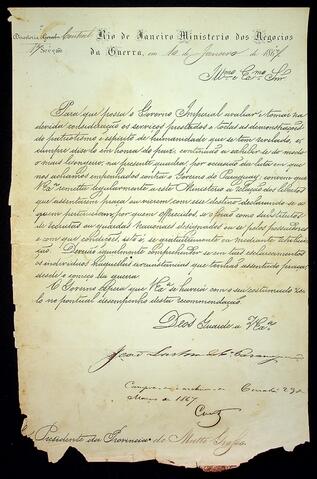 Directoria Central
1ª Secção
Rio de Janeiro Ministerio dos Negocios
da Guerra, em 10 de Janeiro de 1867
Illmo. e Exmo. Snr.
Para que possa o Governo Imperial avaliar e tomar na
devida consideração os serviços prestados e todas as demonstrações
de patriotismo e espirito de humanidade que se tem revelado, e
cumpre dizel-o em honra do paiz, continuão a exhibir-se de modo
o mais lisongeiro na presente quadra, por occasião da luta em que
nos achamos empenhados contra o Governo do Paraguay; convem que
V.Exª remetta regularmente a este Ministerio a relação dos libertos
que assentarem praça ou vierem com esse destino, declarando-se a
quem pertencião, por quem offerecidos, se o forão como substitutos
de recrutas ou guardas nacionaes designados ou se pelos possuidores
e com que condições, isto é, se gratuitamente ou mediante retribui
ção. Deverão igualmente comprehender-se em taes esclarecimentos
os individuos naquellas circunstancias que tenhão assentado praça
desde o começo da guerra.
O Governo espera que V.Exª se haverá com o seu costumado ze
lo no pontual desempenho desta recommendação.
Deos Guarde a V.Exª
João Lustosa da Cª Paranaguá
Cumpra-se Cuiabá 29 de
Março de 1867
Presidente da Provincia de Matto Grosso